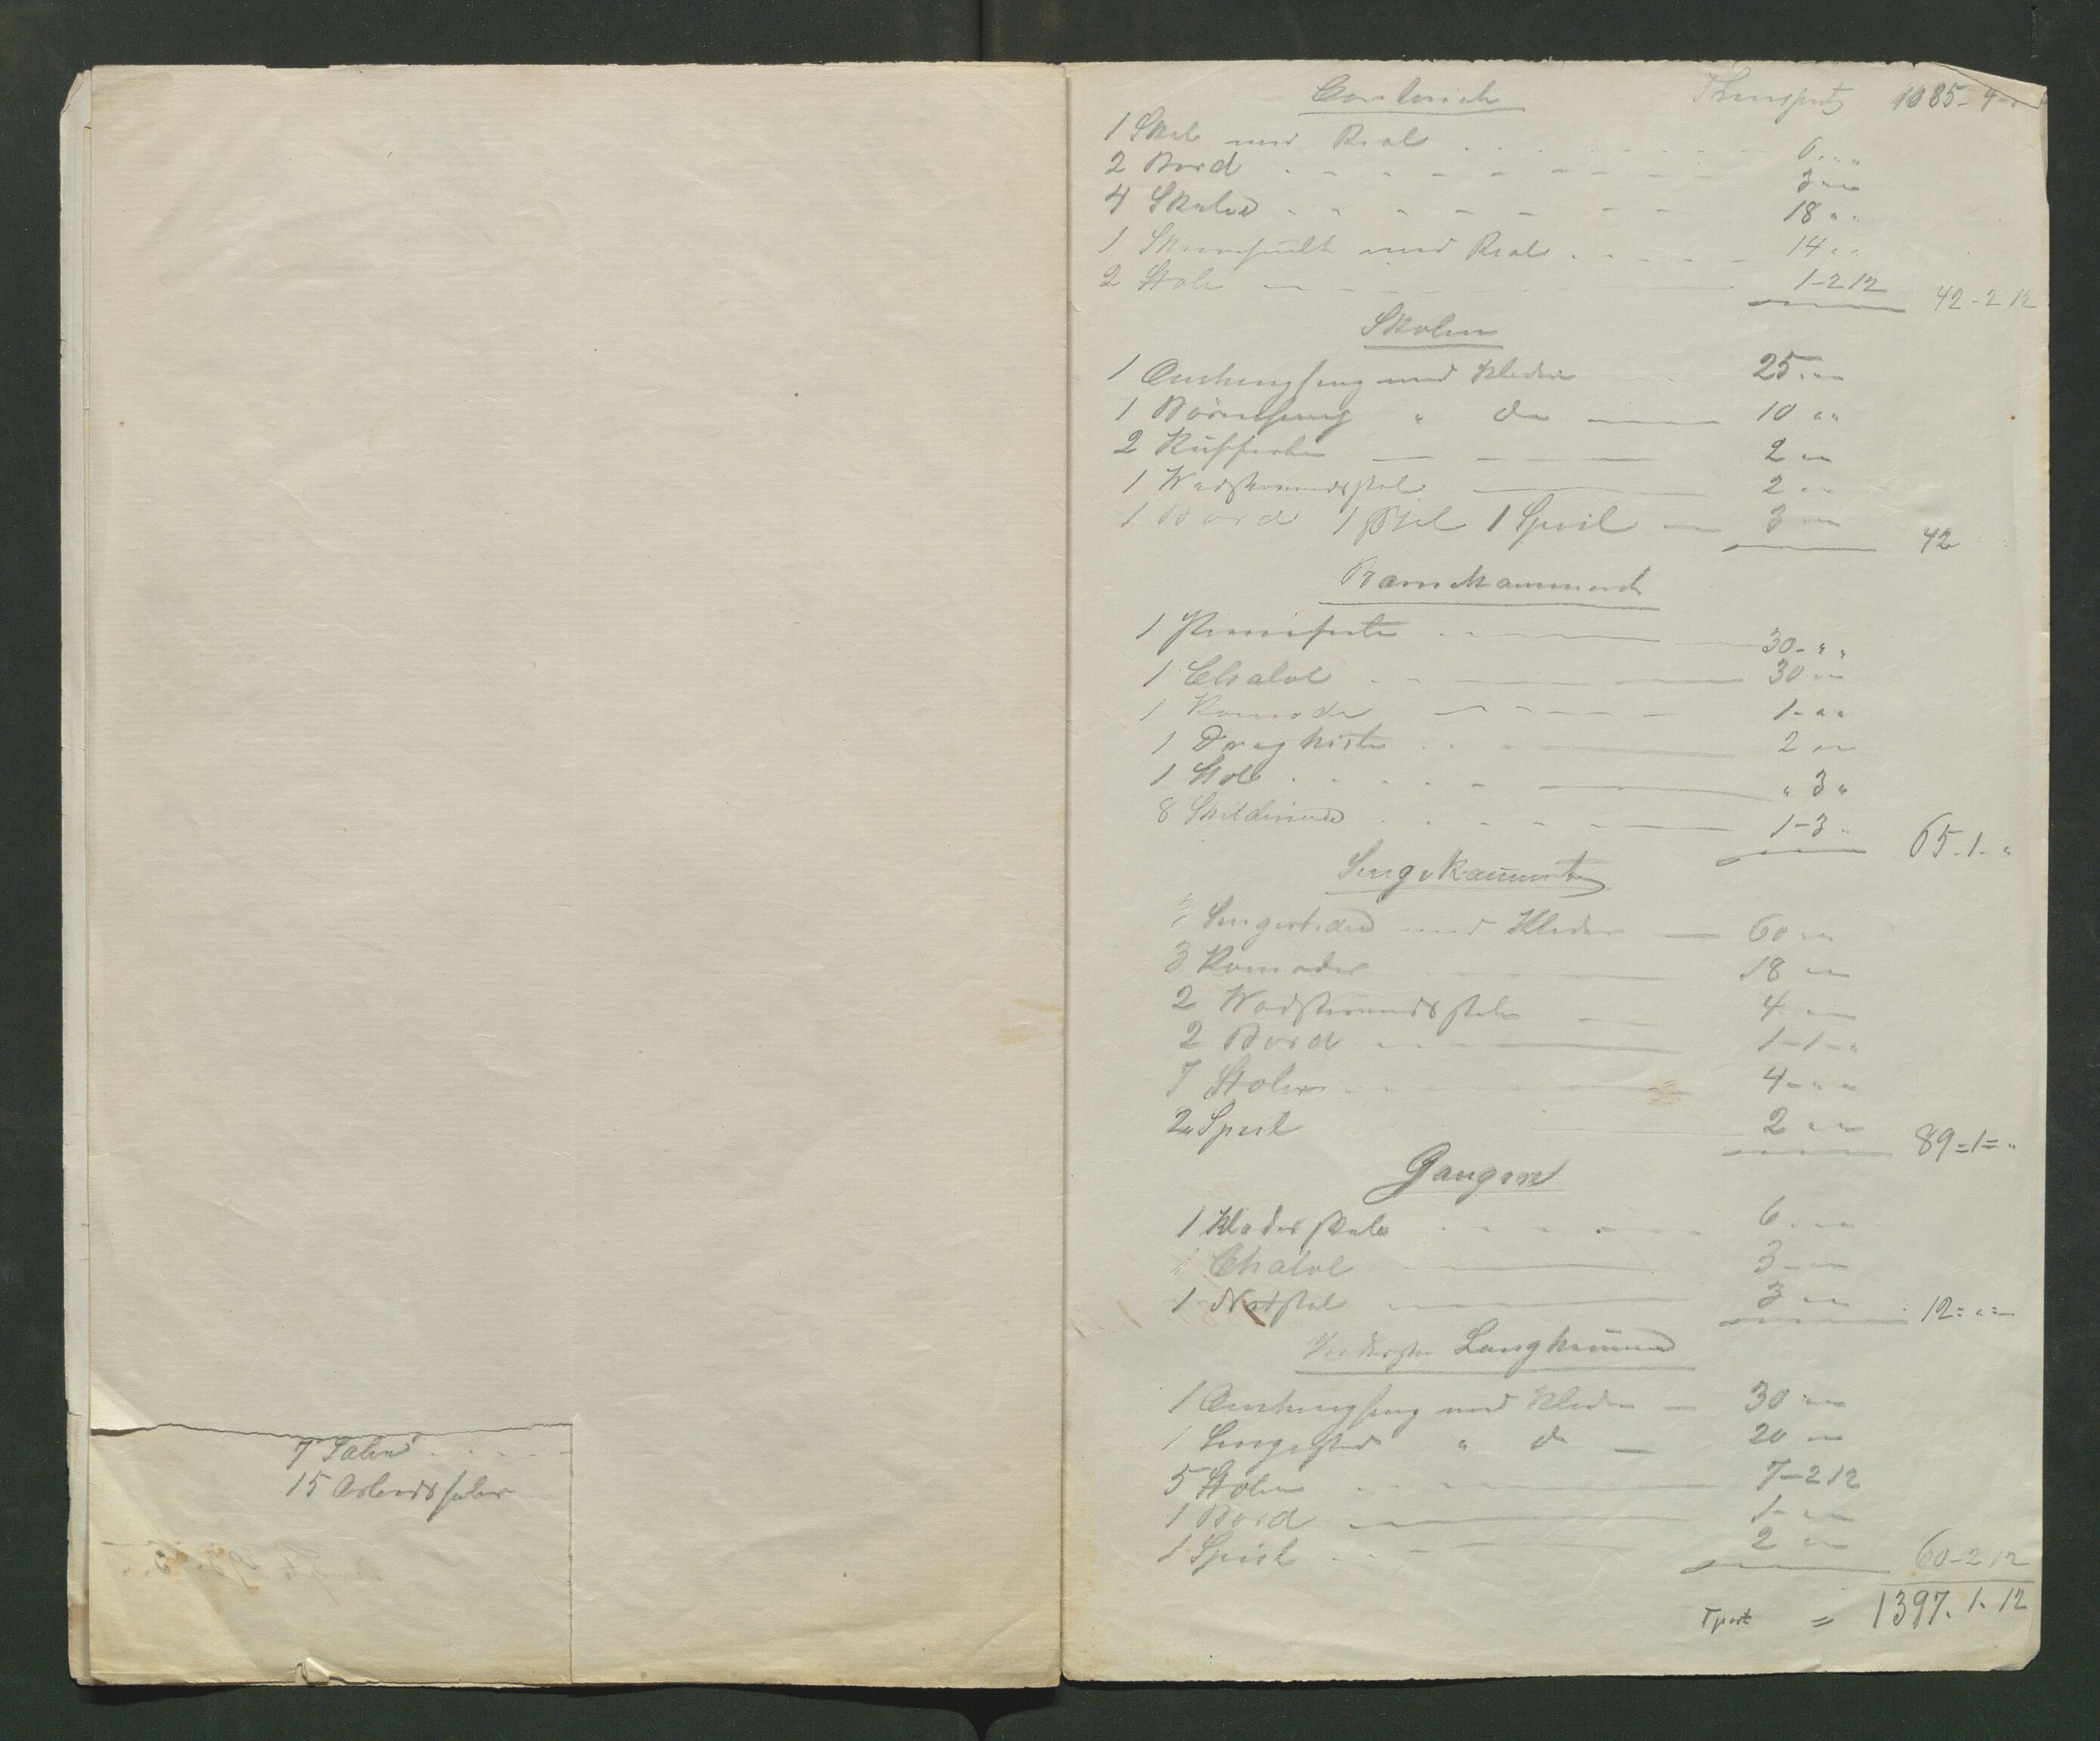 7 Saler
15 Arbeidsseler
Contoiret Transport 1085-4-
1 Skab med Reol 6 " "
2 Bord 3 " "
4 Skabe 18 " "
1 med Reol 14 " "
2 Stole 1-2 12 42-2 12
Skolen
1 Omhengseng med Kleder 25 " "
1 Börneseng " do 10 " "
2 Kufferter 2 " "
1 2 " "
1 Bord 1 1 Speil 3 " " 42
Barnekammeret
1 30 - " "
1 Chatol 30 " "
1 Komode 1 - " "
1 Dragkiste 2 " "
1 Stol " 3 "
8 Skilderier 1-3 " 65-1- "
Sengekammeret
Sengesteder med Kleder 60 " "
3 Komoder 18 " "
2 4 " "
2 Bord 1-1- "
7 Stoler 4 - " "
2 Speil 2 " " 89=1= "
Gangen
1 Klædeskab 6 " "
1 Chatol 3 " "
1 Natstol 3 " " 12 = " =
Langkammer
1 Omhengseng med Kleder 30 " "
1 Sengested " do 20 "
5 Stoler 7-2 12
1 Bord 1 - " "
1 Speil 2 " " 60-2 12
Tport = 1397. 1. 12